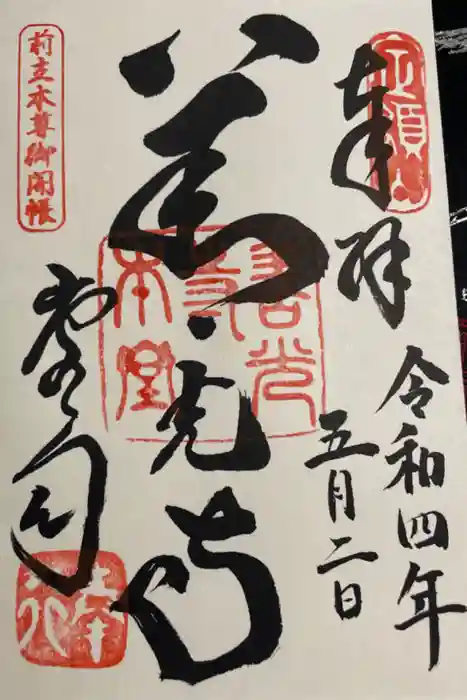 定額山
奉拝
令和四年
五月二日
善光寺
善光
寺
本堂
前立本尊御開帳
堂司